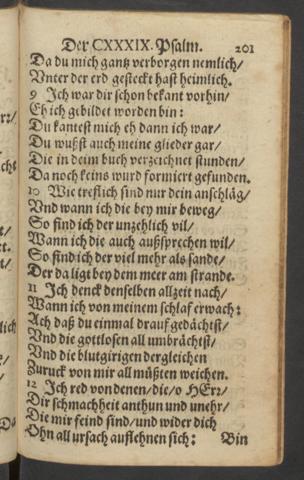 Der CXXXIX. Psalm. 201
Da du mich gantz verborgen nemlich/
Vnter der erd gesteckt hast heimlich.
9 Ich war dir schon bekant vorhin/
Eh ich gebildet worden bin:
Du kantest mich eh dann ich war/
Du wußst auch meine glieder gar/
Die in deim buch verzeichnet stunden/
Da noch keins wurd formiert gefunden.
10 Wie treflich sind nur dein anschläg/
Vnd wann ich die bey mir beweg/
So find ich der unzehlich vil/
Wann ich die auch außsprechen wil/
So sind ich der viel mehr als sande/
Der da ligt bey dem meer am strande.
11 Ich denck denselben allzeit nach/
Wann ich von meinem schlaf erwach:
Ach daß du einmal drauf gedächtst/
Vnd die gottlosen all umbrächtst/
Vnd die blutgirigen dergleichen
Zuruck von mir all müßten weichen.
12 Ich red von denen/die/o HErr/
Dir schmachheit anthun und unehr/
Die mir feind sind/und wider dich
Ohn all ursach auflehnen sich: Bin